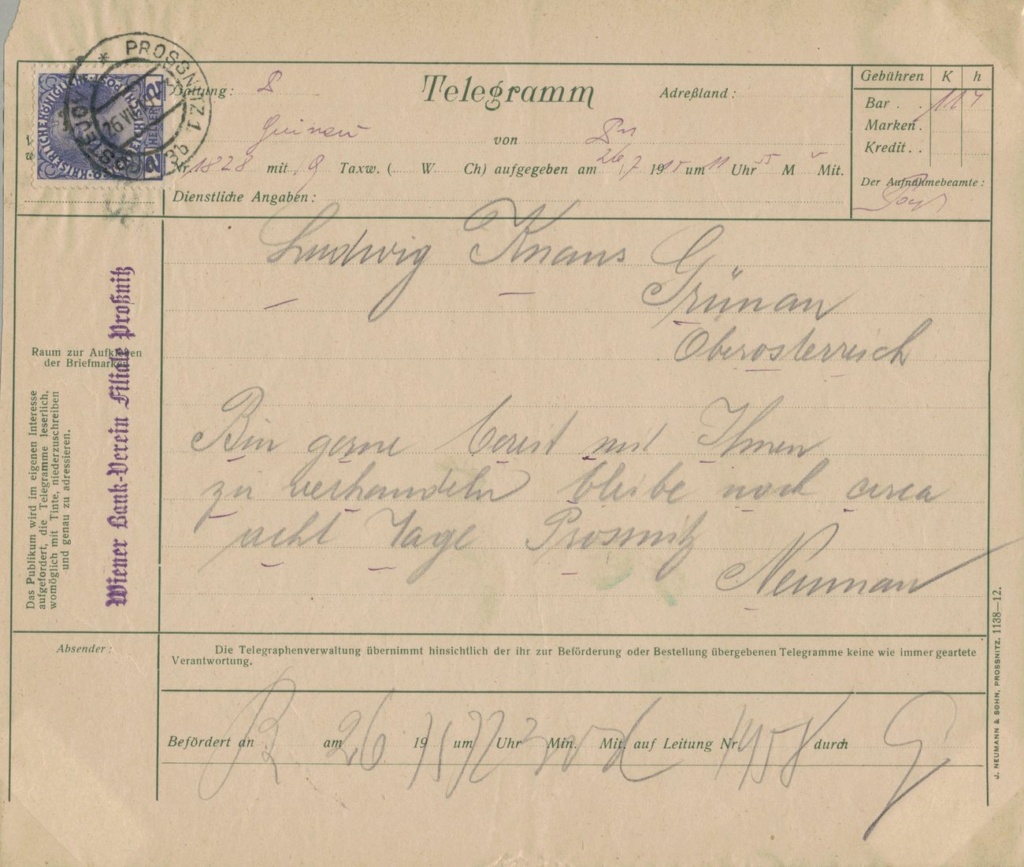 PROSSNITZ 1.
PROSTĚJOV
26 VII
3b
KAISERLICHE KÖNIGLICHE
2 2
HELLER
Telegramm
Adreßland:
Gebühren K h
Bar . 1 14
Marken.
Kredit..
Der Aufnahmebeamte:
von
Nr. 1828 mit 9 Taxw. (.... W. Ch) aufgegeben am 26/7 1915 um 11 Uhr 55 M Mit.
Dienstliche Angaben:
Ludwig Knaus
Grünau
Oberosterreich
Bin gerne bereit mit Ihnen
zu verhandeln bleibe noch circa
acht Tage Prossnitz
Neuman
Raum zur Aufkleben
der Briefmarken
Das Publikum wird im eigenen Interesse
aufgefordert, die Telegramme leserlich,
womöglich mit Tinte, niederzuschreiben
und genau zu adressieren.
Wiener Bank-Verein Filiale Proßnitz
Absender:
Die Telegraphenverwaltung übernimmt hinsichtlich der ihr zur Beförderung oder Bestellung übergebenen Telegramme keine wie immer geartete
Verantwortung.
Befördert an am 26 19 um Uhr Min. Mit. auf Leitung Nr. durch
J. NEUMANN & SOHN, PROSSNITZ. 1138—12.